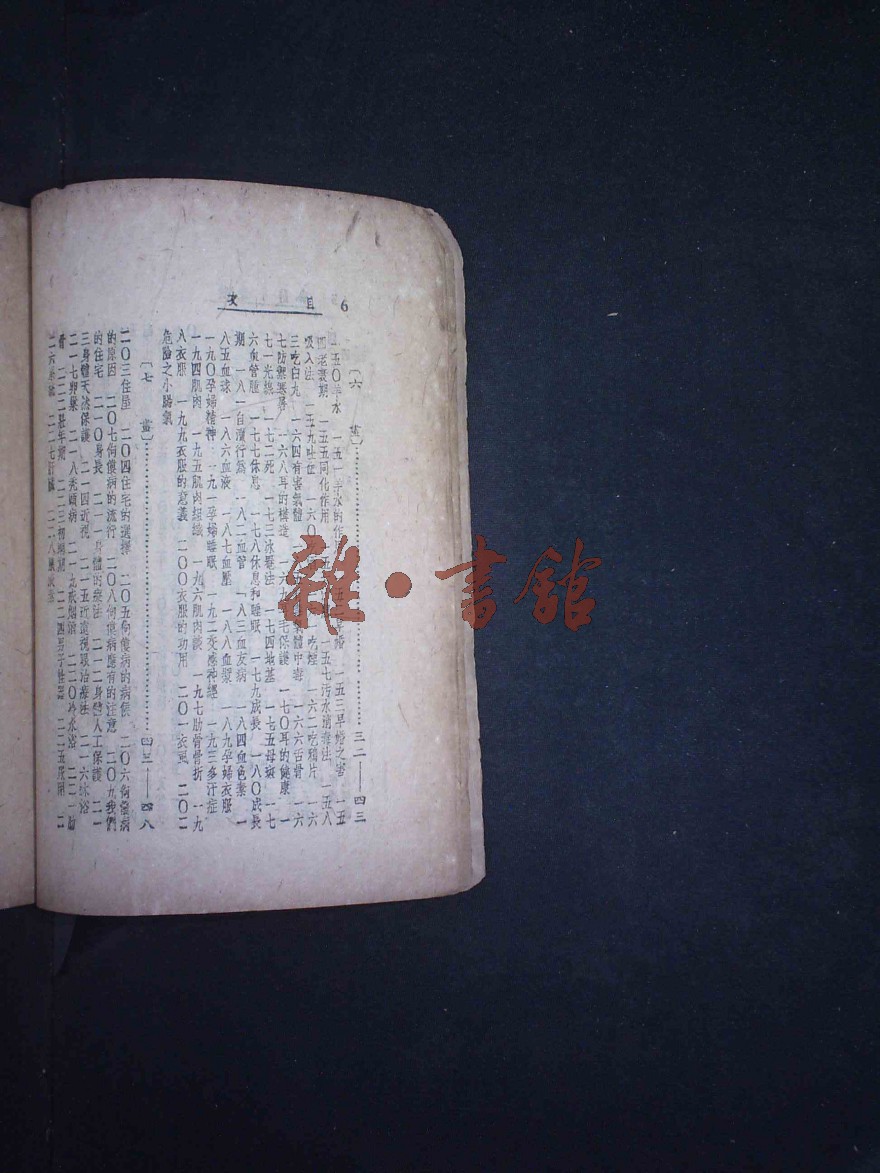 6 目次
〔六 畫〕 三二——四三
一五〇羊水 一五一羊水的作 一五三早婚之害 一五
四老衰期 一五五同化作用 一五七污水消毒法 一五八
吸入法 一五九吐血 一六〇 吃煙 一六二吃鴉片 一六
三吃白丸 一六四有害氣體 體中毒 一六六舌骨 一六
七防禦寒暑 一六八耳的構造 毛保護 一七〇耳的健康 一
七一光線 一七二死 一七三冰罨法 一七四地基 一七五母癍 一七
六血管腫 一七七休息 一七八休息和睡眠 一七九成長 一八〇成長
期 一八一自瀆行為 一八二血管 一八三血友病 一八四血色素 一
八五血球 一八六血液 一八七血壓 一八八血漿 一八九孕婦衣服
一九〇孕婦精神 一九一孕婦睡眠 一九二交感神經 一九三多汗症
一九四肌肉 一九五肌肉組織 一九六肌肉談 一九七肋骨骨折 一九
八衣服 一九九衣服的意義 二〇〇衣服的功用 二〇一衣虱 二〇二
危險之小腸氣
〔七 畫〕 四三——四八
二〇三住屋 二〇四住宅的選擇 二〇五佝僂病的病候 二〇六佝僂病
的原因 二〇七佝僂病的流行 二〇八佝僂病應有的注意 二〇九我們
的住宅 二一〇身長 二一一身體的療法 二一二身體人工保護 二一
三身體天然保護 二一四近視 二一五近遠視眼治療法 二一六沐浴
二一七卵巢 二一八禿頭病 二一九戒烟酒 二二〇冷水浴 二二一肋
骨 二二二壯年期 二二三初婚期 二二四男子性器 二二五尿道 二
二七肝臟
雜·書館